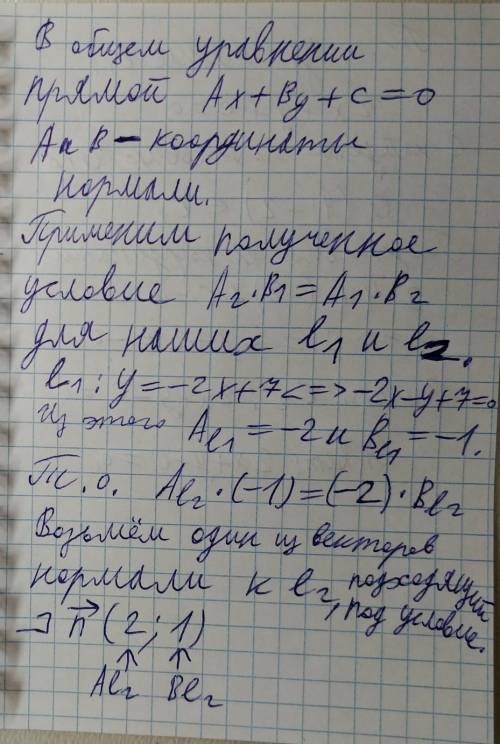 В общем уравнении
прямой Ax + By + c = 0
A и B – координаты
нормали.
Применим полученное
условие A₂·B₁ = A₁·B₂
для наших l₁ и l₂.
l₁: y = -2x+7 <=> -2x-y+7=0
Из этого Al₁ = -2 и Bl₁ = -1.
Т.о. Al₂·(-1) = (-2)·Bl₂
Возьмём один из векторов
нормали к l₂, подходящий
под условие.
⊐ n⃗ (2; 1)
↑ ↑
Al₂ Bl₂